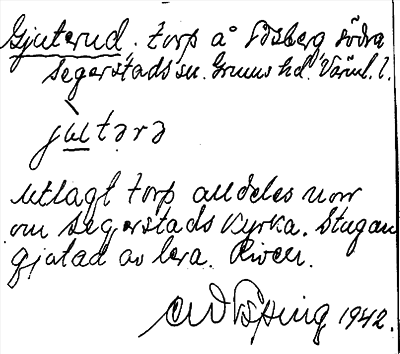 Gjuterud. torp å Edsberg södra
Segerstads sn. Grums hd. Värml. l.
jùtərə
Utlagt torp alldeles norr
om Segerstads kyrka. Stugan
gjutad av lera. Riven.
1942.